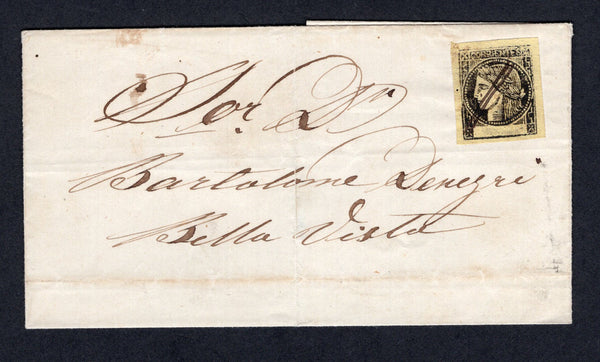 CORRIENTES
Sor. Dn
Bartolome Denegri
Bella Vista